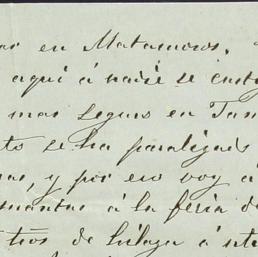 en Matamoros.
aquí á nadie se
mas seguro en Tam
se ha paralizado
y por eso voy á
mantas á la feria de
de hilaza á